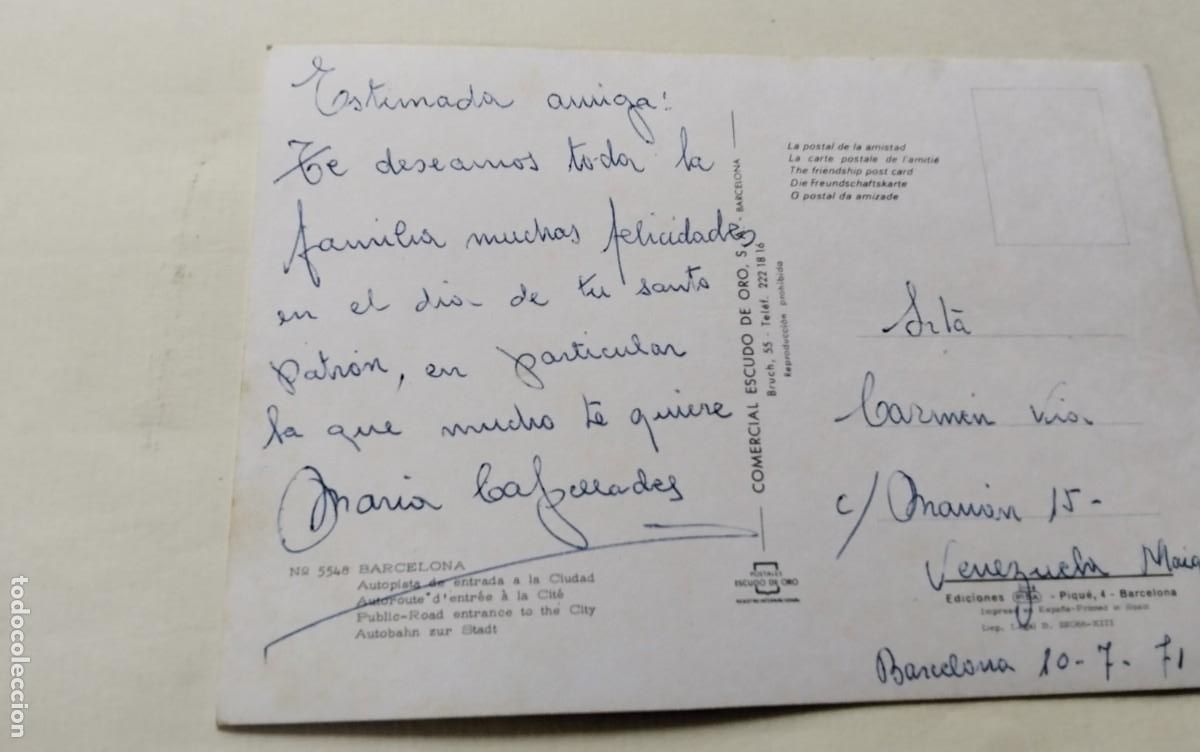 Estimada amiga:
Te deseamos toda la
familia muchas felicidades
en el dia de tu santo
patrón, en particular
la que mucho te quiere
Maria
Nº 5548 BARCELONA
Autopista de entrada a la Ciudad
Autoroute d'entrée à la Cité
Public-Road entrance to the City
Autobahn zur Stadt
COMERCIAL ESCUDO DE ORO, S. A. - BARCELONA
Bruch, 55 - Teléf. 222 18 16
Reproducción prohibida
POSTALES
ESCUDO DE ORO
La postal de la amistad
La carte postale de l'amitié
The friendship post card
Die Freundschaftskarte
O postal da amizade
Srtª
Carmen
c/ 15-
Ediciones - Piqué, 4 - Barcelona
Impreso en España-Printed in Spain
Dep. Legal B.
Barcelona 10-7-71
todocoleccion